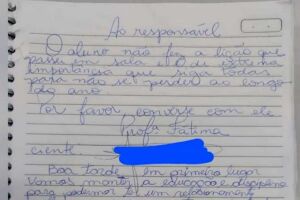 Ao responsável
O aluno não fez a lição que
passei em sala é de extrema
importância que siga todas
para não se perder ao longo
do ano.
Por favor converse com ele
Profª Fatima
ciente
Boa tarde, em primeiro lugar
Vamos manter a educação e disciplina
para podermos ter um relacionamento